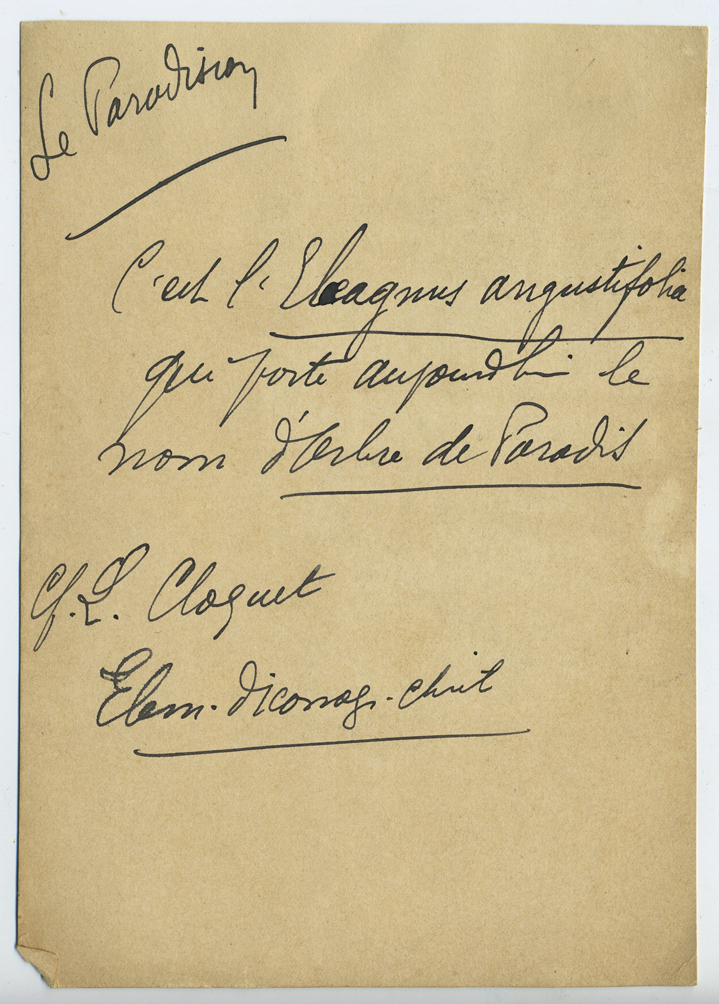 Le Paradision
C'est l'Eleagnus angustifolia
qui porte aujourd'hui le
nom d'Arbre de Paradis
Cf. L. Cloquet
Elem. d'iconogr. chret